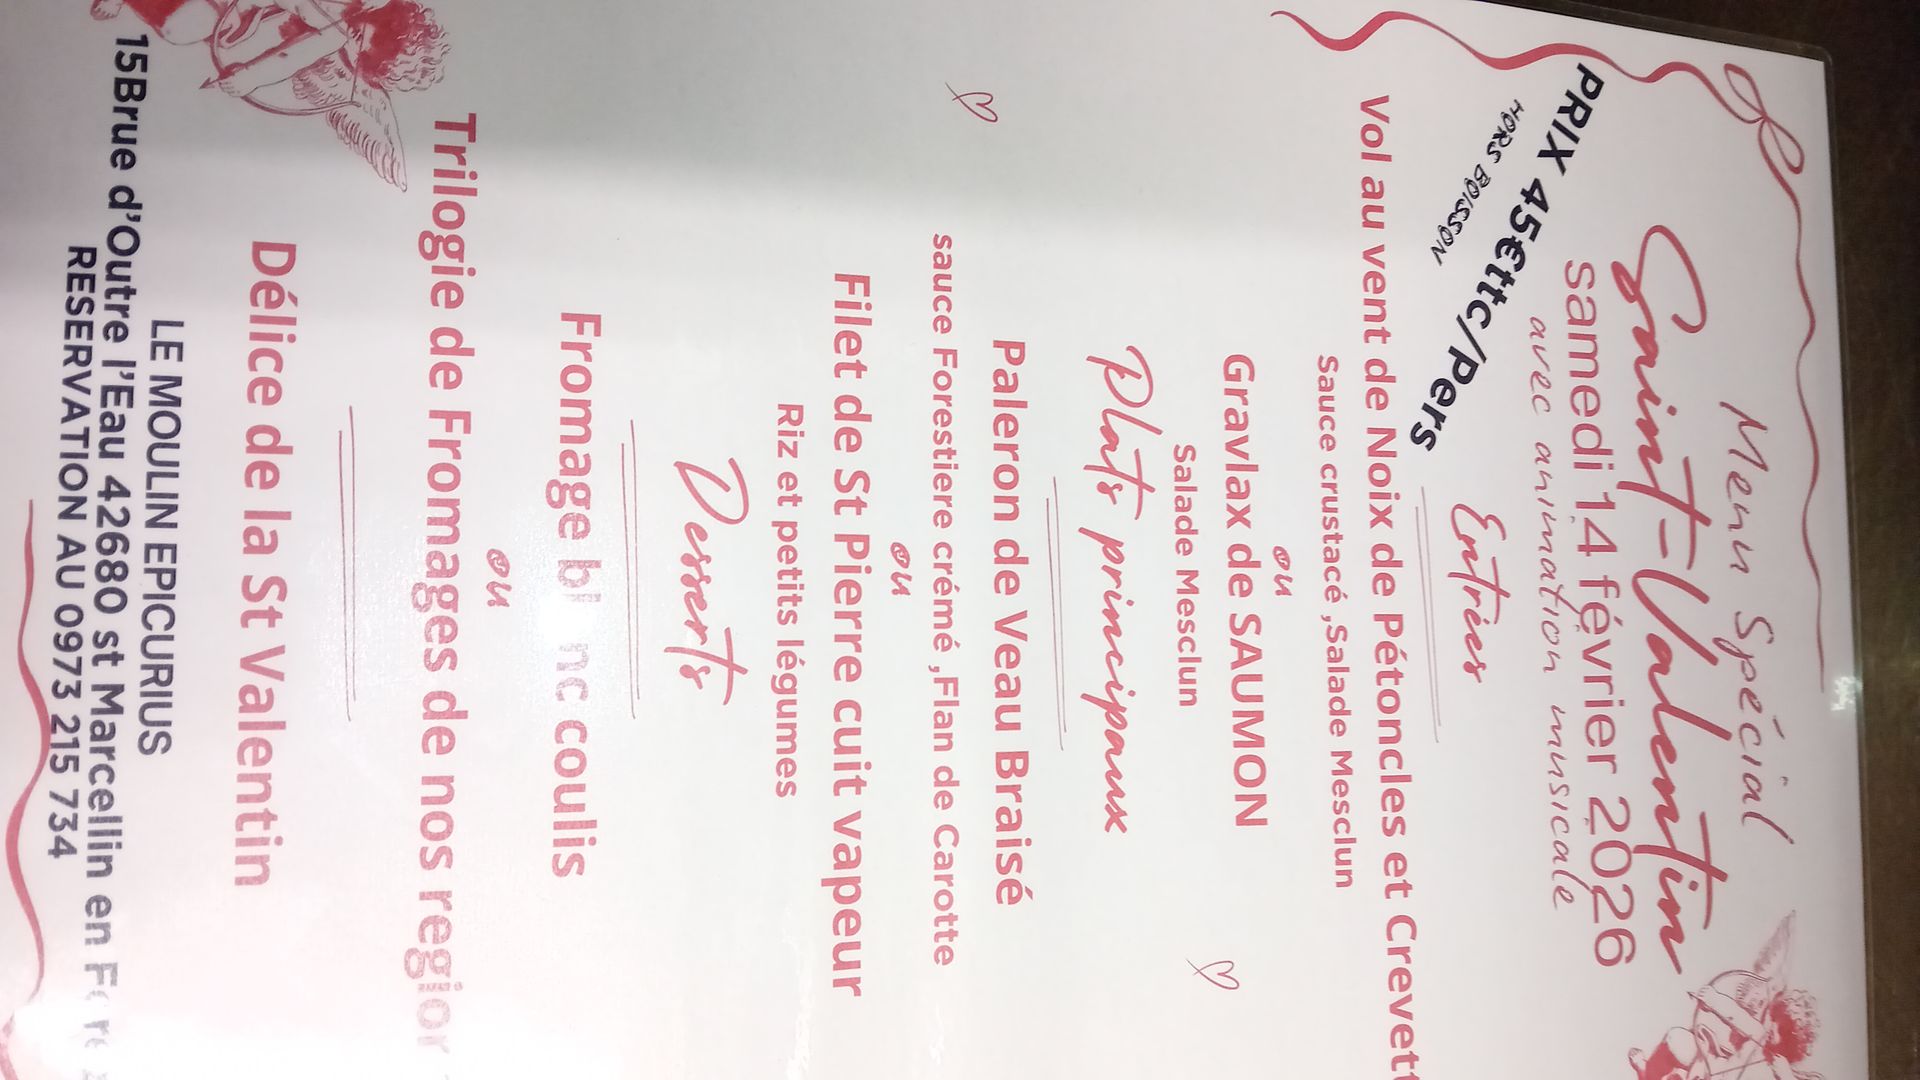 Menu Spécial
Saint-Valentin
samedi 14 février 2026
avec animation musicale
PRIX 45€ttc/Pers
HORS BOISSON
Entrées
Vol au vent de Noix de Pétoncles et
Sauce crustacé ,Salade Mesclun
ou
Gravlax de SAUMON
Salade Mesclun
Plats principaux
Paleron de Veau Braisé
sauce Forestiere crémé ,Flan de Carotte
ou
Filet de St Pierre cuit vapeur
Riz et petits légumes
Desserts
Fromage coulis
ou
Trilogie de Fromages de nos
Délice de la St Valentin
LE MOULIN EPICURIUS
15Brue d'Outre l'Eau 42680 st Marcellin en
RESERVATION AU 0973 215 734